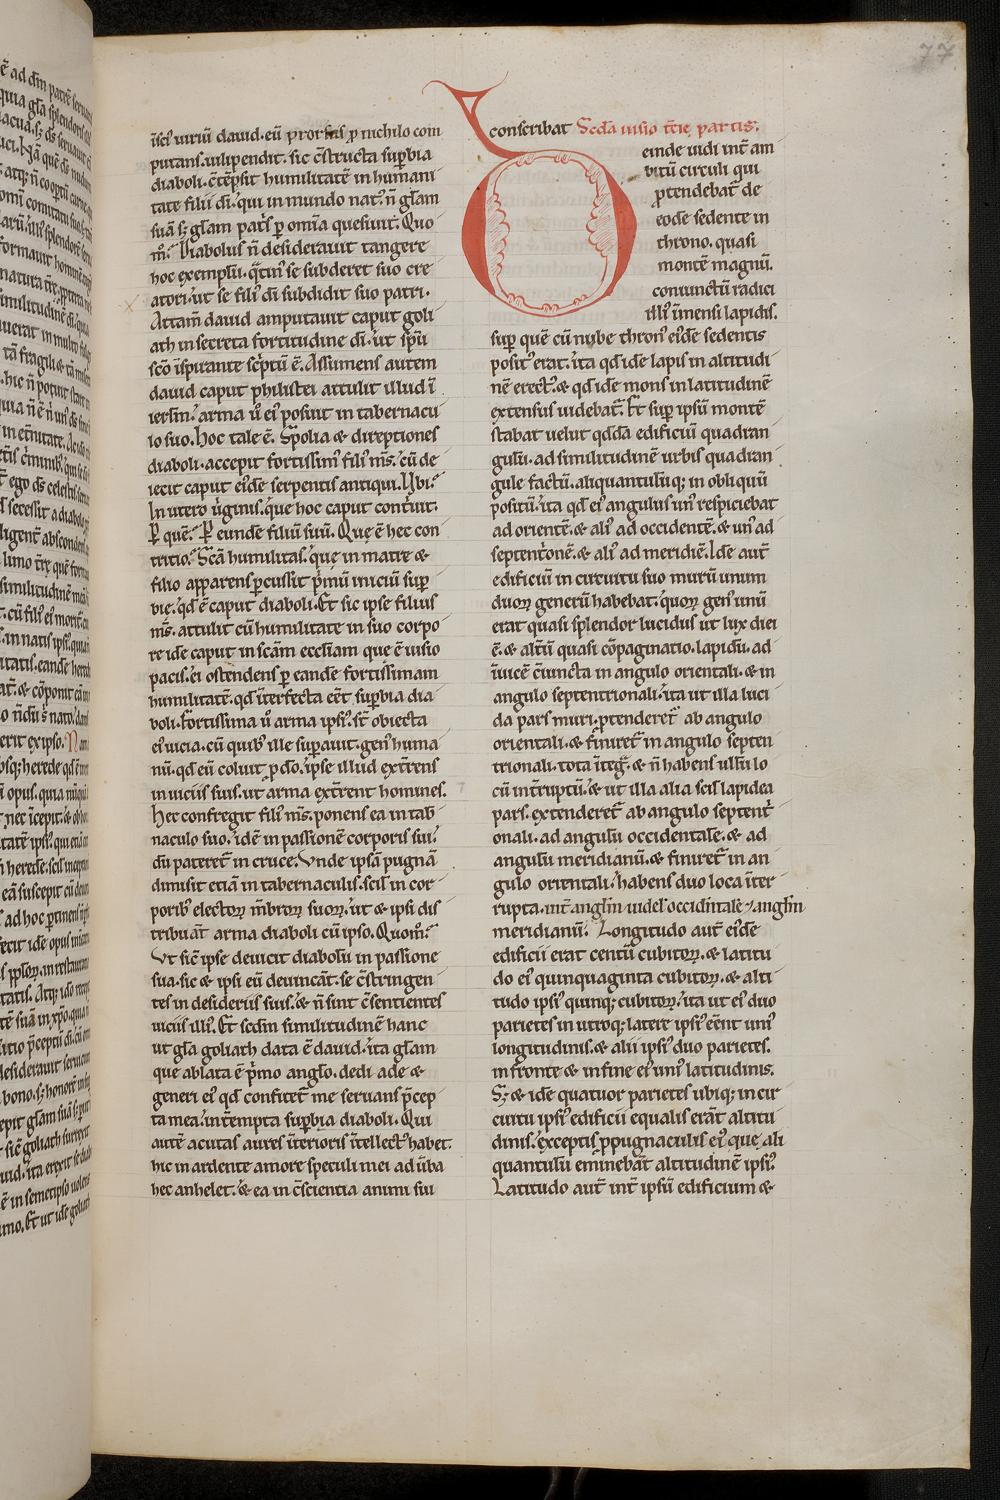 77
īsci uirtū dauid. eū prorsus ꝑ nichilo com
putans. uilipendit. sic c̄structa suꝑbia
diaboli. c̄tēpsit humilitatē in humani
tate filii di. qui in mundo nat̄. n̄ gl̄am
suā sꝫ gl̄am patris ꝑ om̄ia quesiuit. Quo
m̄. Diabolus n̄ desiderauit tangere
hoc exemplū. q̄tin̄ se subderet suo cre
atori. ut se fili᷒ di subdidit suo patri.
Attam̄ dauid amputauit caput goli
ath in secreta fortitudine di. ut sp̄u
sc̄o īspirante sc̄ptū ē. Assumens autem
dauid caput philistei attulit illud ī
ierl̄m. arma ů ei᷒ posuit in tabernacu
lo suo. hoc tale ē. Spolia & direptiones
diaboli. accepit fortissim᷒ fili᷒ m̄s. cū de
iecit caput ei᷒dē serpentis antiqui. Ubi.
In utero ůginis. que hoc caput cont̓uit.
Ꝑ quē. Ꝑ eundē filiū suū. Quę ē hec con
tritio. Sc̄a humilitas. quę in matre &
filio apparens ꝑcussit p̓mū iniciū suꝑ
bie. qd̄ ē caput diaboli. Et sic ipse filius
m̄s. attulit cū humilitate in suo corpo
re idē caput in sc̄am eccl̄iam que ē uisio
pacis. ei ostendens ꝑ eandē fortissimam
humilitatē. qd̄ īterfecta cēt suꝑbia dia
boli. Fortissima ů arma ipsi᷒. st̄ obiecta
ei᷒ uicia. cū quib᷒ ille suꝑauit. gen᷒ huma
nū. qd̄ eū coluit ꝓ dō. ipse illud ext̓rens
in uiciis suis. ut arma ext̓rent homines.
Hec confregit fili᷒ m̄s. ponens ea in tab̄
naculo suo. idē in passionē corporis sui.
dū pateret̄ in cruce. Vnde ipsā pugnā
dimisit etiā in tabernaculis. scil̄ in cor
porib᷒ electoꝝ m̄broꝝ suoꝝ. ut & ipsi dis
tribuāt arma diaboli cū ipso. Quom̄.
Vt sic̄ ipse deuicit diabolū in passione
sua. sic & ipsi eū deuincāt. se c̄stringen
tes in desideriis suis. & n̄ sint c̄sentientes
uiciis illi᷒. Et sc̄dm similitudinē hanc
ut gl̄a goliath data ē dauid. ita gl̄am
que ablata ē p̓mo anglo. dedi ade &
generi ei᷒ qd̄ confitet̄ me seruans p̄cep
ta mea. int̓empta suꝑbia diaboli. Qui
autē acutas aures īterioris ītellect᷒ habet.
hic in ardente amore speculi mei ad ůba
hec anhelet. & ea in c̄scientia animi sui
conscribat Sc̄da uisio tc̄ie partis.
Deinde uidi int̄ am
bitū circuli qui
ꝓtendebat̄ de
eodē sedente in
throno. quasi
montē magnū.
coniunctū radici
illi᷒ īmensi lapidis.
suꝑ quē cū nube thron᷒ ei᷒dē sedentis
posit᷒ erat. ita qd̄ idē lapis in altitudi
nē erect᷒. & qd̄ idē mons in latitudinē
extensus uidebat̄. Et suꝑ ipsū montē
stabat uelut qddā edificiū quadran
gulū. ad similitudinē urbis quadran
gule factū. aliquantulūqꝫ in obliquū
positū. ita qd̄ ei᷒ angulus un᷒ respiciebat
ad orientē. & ali᷒ ad occidentē. & un᷒ ad
septent̓onē. & ali᷒ ad meridiē. Idē aut̄
edificiū in circuitu suo murū unum
duoꝝ generū habebat. quoꝝ gen᷒ unū
erat quasi splendor lucidus ut lux diei
ē. & altū quasi cōpaginatio. lapidū. ad
īuicē c̄iuncta in angulo orientali. & in
angulo septentrionali. ita ut illa luci
da pars muri. ꝓtenderet̄ ab angulo
orientali. & finiret̄ in angulo septen
trionali. tota īteg̓. & n̄ habens ullū lo
cū int̓ruptū. & ut illa alia scil̄ lapidea
pars. extenderet̄ ab angulo septent̓
onali. ad angulū occidentalē. & ad
angulū meridianū. & finiret̄ in an
gulo orientali. habens duo loca īter
rupta. int̄ anglm̄ uidel᷒ occidentalē & anglm̄
meridianū. Longitudo aut̄ ei᷒dē
edificii erat centū cubitoꝝ. & latitu
do ei᷒ quinquaginta cubitoꝝ. & alti
tudo ipsi᷒ quinqꝫ cubitoꝝ. ita ut ei᷒ duo
parietes in utroqꝫ latere ipsi᷒ eēnt uni᷒
longitudinis. & alii ipsi᷒ duo parietes.
in fronte & in fine ei᷒ uni᷒ latitudinis.
Sꝫ & idē quatuor parietes ubiqꝫ in cir
cuitu ipsi᷒ edificii equalis erāt altitu
dinis. exceptis ꝓpugnaculis ei᷒ que ali
quantulū eminebāt altitudinē ipsi᷒.
Latitudo aut̄ int̄ ipsū edificium &